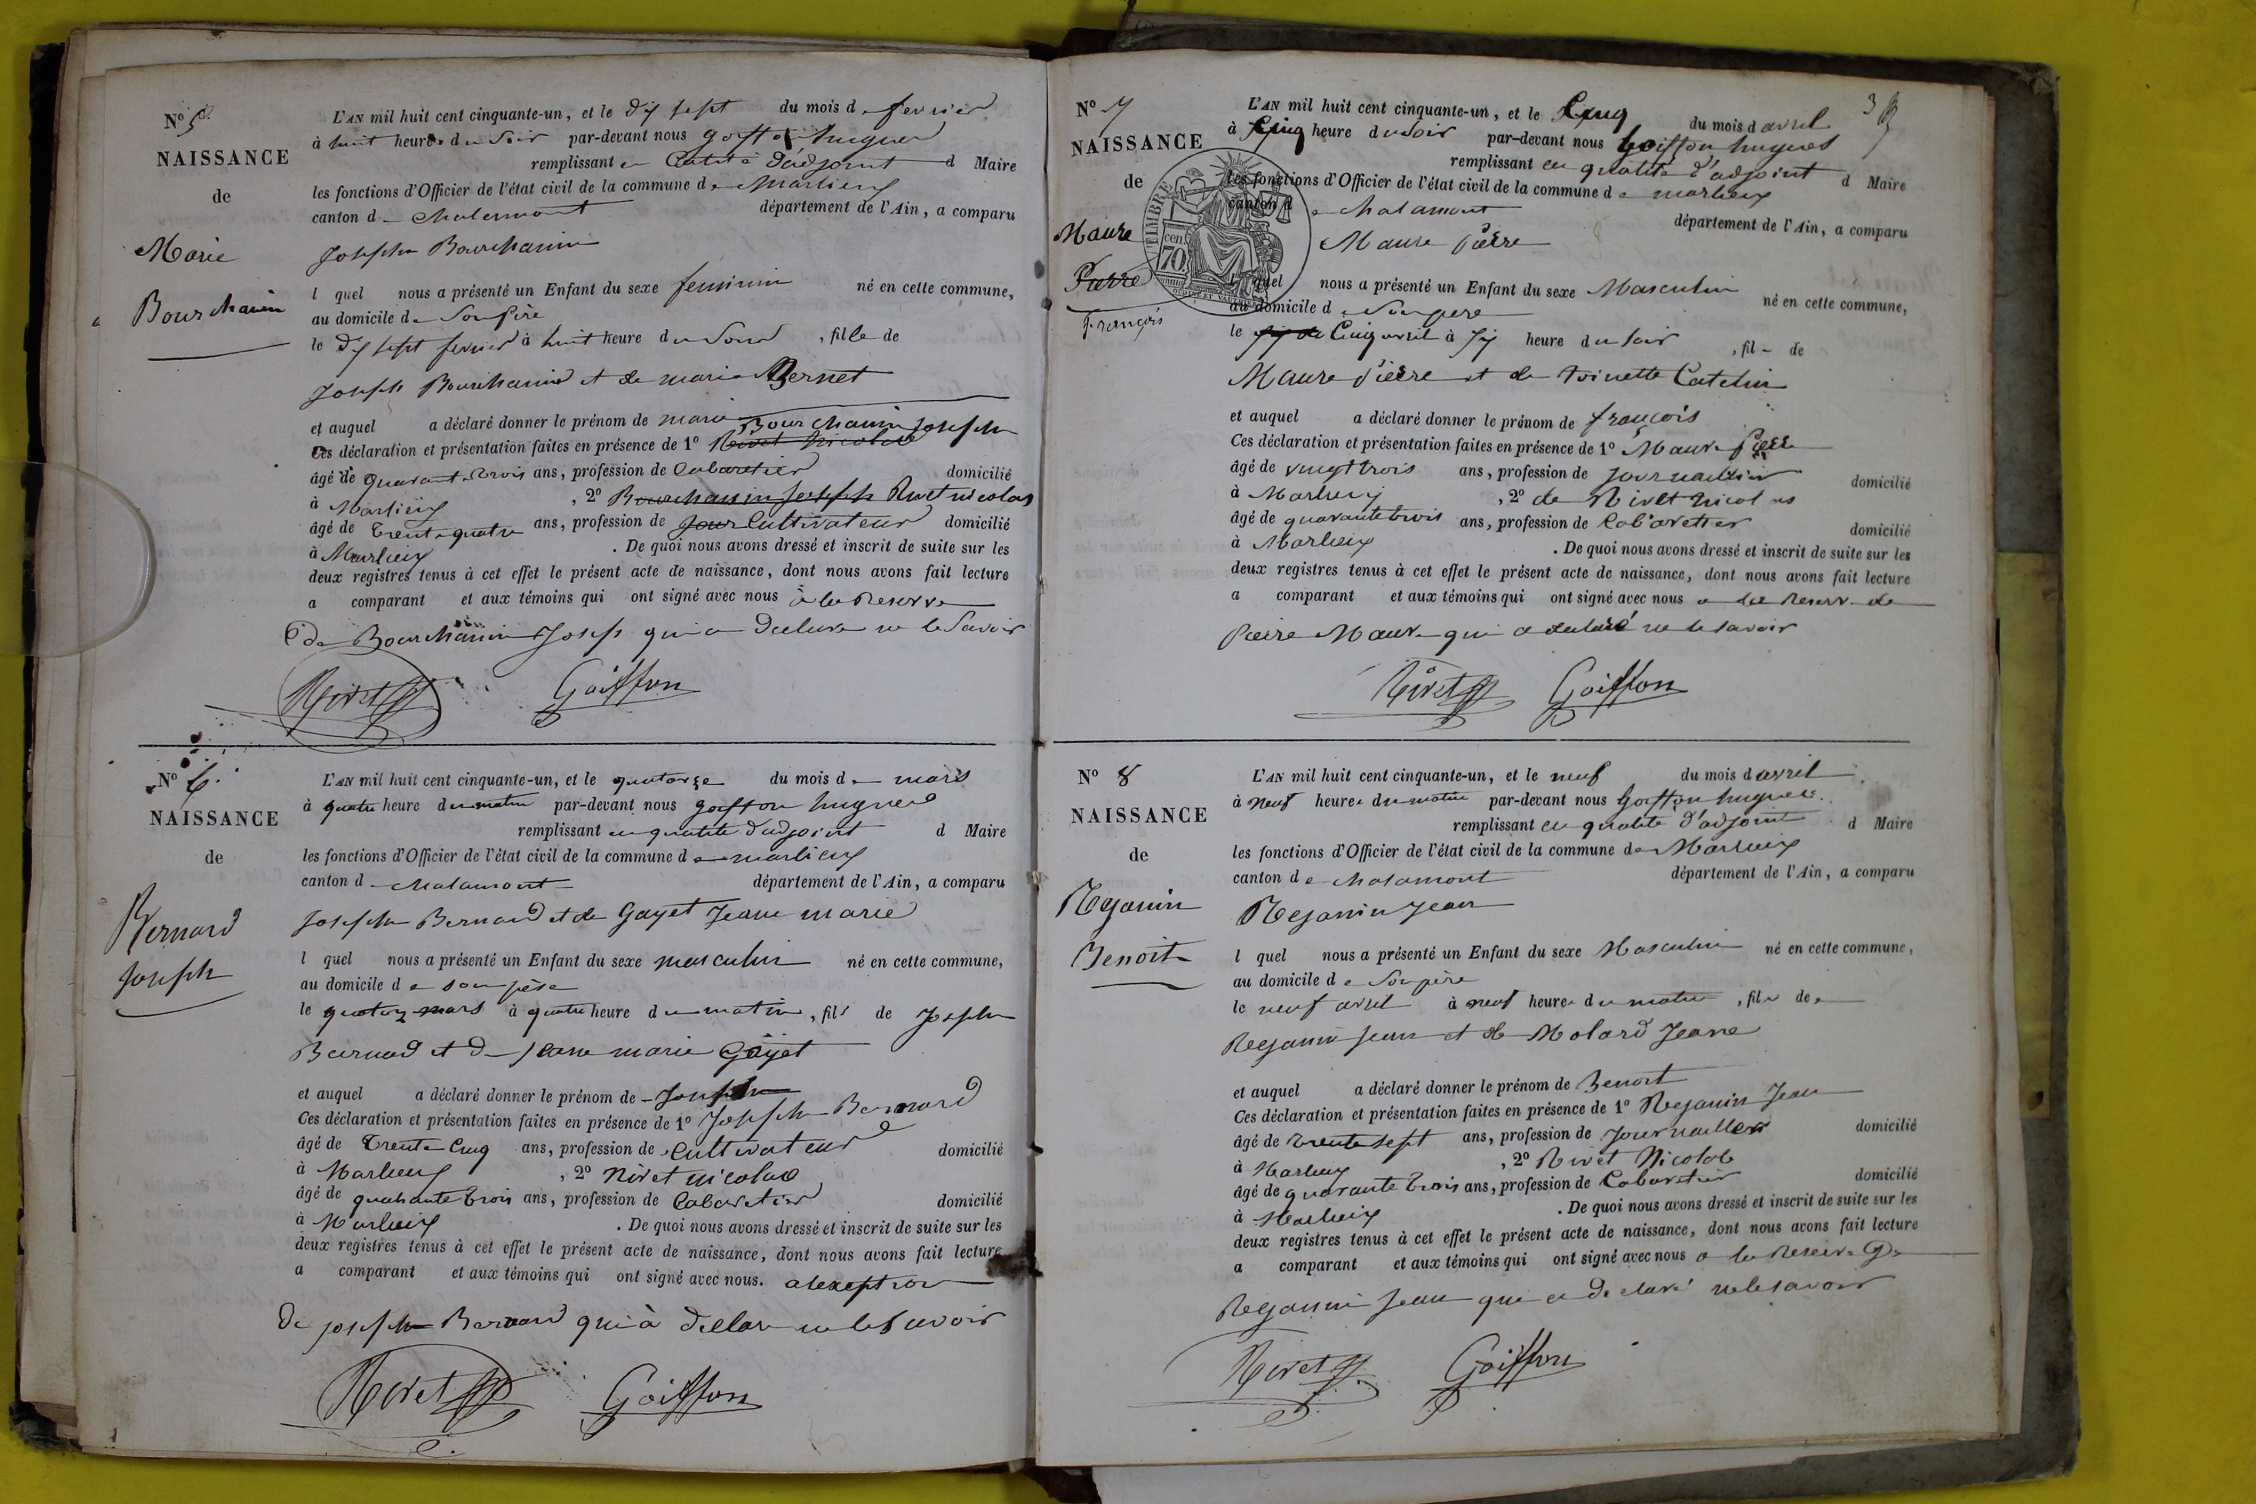 N° 5
NAISSANCE
de
Marie
Bourchanin
L'AN mil huit cent cinquante-un, et le dix sept du mois de fevrier
à huit heures du Soir par-devant nous goiffon hugues
remplissant en Calité d'adjoint d Maire
les fonctions d'Officier de l'état civil de la commune de Marlieux
canton de Chalamont département de l'Ain, a comparu
Joseph Bourchanin
l quel nous a présenté un Enfant du sexe feminin né en cette commune,
au domicile de Son père
le dix sept fevrier à huit heure du Soir, fille de
Joseph Bourchanin et de marie Bernet
et auquel a déclaré donner le prénom de marie
Bourchanin Joseph
Ces déclaration et présentation faites en présence de 1° Rivet Nicolas
âgé de quarant trois ans, profession de Cabaretier domicilié
à Marlieux, 2° Bourchanin Joseph Rivet nicolas
âgé de trente quatre ans, profession de Jour Cultivateur domicilié
à Marlieux. De quoi nous avons dressé et inscrit de suite sur les
deux registres tenus à cet effet le présent acte de naissance, dont nous avons fait lecture
a comparant et aux témoins qui ont signé avec nous à la Reserve
de Bourchanin Joseph qui a declare ne le Savoir
Rivet Goiffon
N° 6.
NAISSANCE
de
Bernard
Joseph
L'AN mil huit cent cinquante-un, et le quatorze du mois de mars
à quatre heure du matin par-devant nous goiffon hugues
remplissant en qualité d'adjoint d Maire
les fonctions d'Officier de l'état civil de la commune de marlieux
canton de Chalamont département de l'Ain, a comparu
Joseph Bernard et de Gayet Jeane marie
l quel nous a présenté un Enfant du sexe masculin né en cette commune,
au domicile de son père
le quatorz mars à quatre heure du matin, fils de Joseph
Bernard et de Jeane marie Gayet
et auquel a déclaré donner le prénom de Joseph
Ces déclaration et présentation faites en présence de 1° Joseph Bernard
âgé de trente Cinq ans, profession de Cultivateur domicilié
à Marlieux, 2° Rivet nicolas
âgé de quarante trois ans, profession de Cabaretier domicilié
à Marlieux. De quoi nous avons dressé et inscrit de suite sur les
deux registres tenus à cet effet le présent acte de naissance, dont nous avons fait lecture
a comparant et aux témoins qui ont signé avec nous. a lexeption
de joseph Bernard qui à déclare ne le Savoir
Rivet Goiffon
3
N° 7
NAISSANCE
de
Maure
Pierre
François
TIMBRE
70
cen.
L'AN mil huit cent cinquante-un, et le Cinq du mois d avril
à Cinq heure du Soir par-devant nous Goiffon hugues
remplissant en qualité d'adjoint d Maire
les fonctions d'Officier de l'état civil de la commune de marlieux
canton de Chalamont département de l'Ain, a comparu
Maure Pierre
l quel nous a présenté un Enfant du sexe Masculin né en cette commune,
au domicile de Son pere
le Cinq avril à Six heure du Soir, fil de
Maure Pierre et de toinette Catelin
et auquel a déclaré donner le prénom de françois
Ces déclaration et présentation faites en présence de 1° Maure Pierre
âgé de vingt trois ans, profession de Journaillier domicilié
à Marlieux, 2° de Rivet Nicolas
âgé de quarante trois ans, profession de Cabaretier domicilié
à Marlieux. De quoi nous avons dressé et inscrit de suite sur les
deux registres tenus à cet effet le présent acte de naissance, dont nous avons fait lecture
a comparant et aux témoins qui ont signé avec nous a la Reserv de
Pierre Maure qui a declaré ne le savoir
Rivet Goiffon
N° 8
NAISSANCE
de
Rejanin
Benoit
L'AN mil huit cent cinquante-un, et le neuf du mois d avril
à Neuf heure du matin par-devant nous Goiffon hugues
remplissant en qualité d'adjoint d Maire
les fonctions d'Officier de l'état civil de la commune de Marlieux
canton de Chalamont département de l'Ain, a comparu
Rejanin Jean
l quel nous a présenté un Enfant du sexe Masculin né en cette commune,
au domicile de Son père
le neuf avril à neuf heure du matin, fil de
Rejanin Jean et de Molard Jeane
et auquel a déclaré donner le prénom de Benoit
Ces déclaration et présentation faites en présence de 1° Rejanin Jean
âgé de trente sept ans, profession de Journaillier domicilié
à Marlieux, 2° Rivet Nicolas
âgé de quarante trois ans, profession de Cabaretier domicilié
à Marlieux. De quoi nous avons dressé et inscrit de suite sur les
deux registres tenus à cet effet le présent acte de naissance, dont nous avons fait lecture
a comparant et aux témoins qui ont signé avec nous a la Reserve de
Rejanin Jean que a declaré ne le savoir
Rivet Goiffon